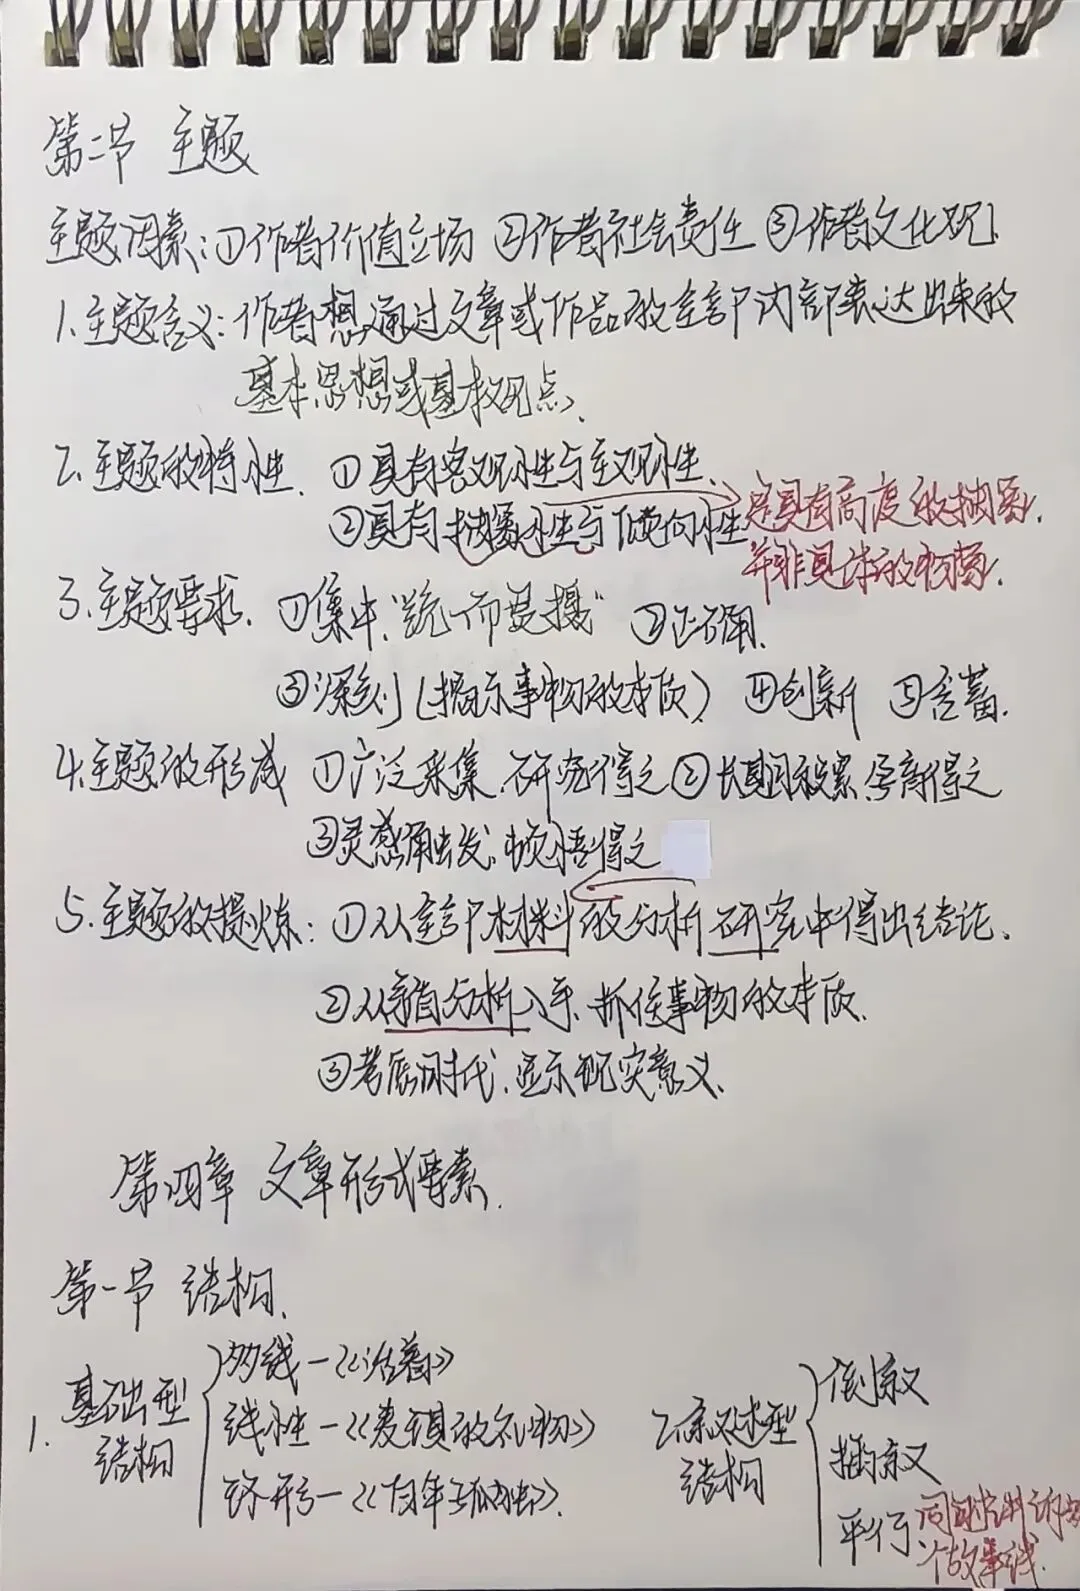 第二节 主题
主题因素：①作者价值立场 ②作者社会责任 ③作者文化观
1.主题含义：作者想通过文章或作品的全部内部表达出来的
基本思想或基本观点、
2.主题的特性、①具有客观性与主观性、
②具有抽象性与倾向性
是具有高度的抽象，
并非具体的物质，
3.主题要求、①集中，“统一而是摄” ②正确、
③深刻（揭示事物的本质） ④创新 ⑤含蓄、
4.主题的形成 ①广泛采集、研究得之 ②长期积累、得之
③灵感触发、顿悟得之
5.主题的提炼：①从全部材料的分析研究中得出结论、
②从分析入手、抓住事物的本质、
③考虑时代、显示现实意义、
第四章 文章形式要素、
第一节 结构、
1.基础型结构
多线—《活着》
线性—《麦琪的礼物》
环形—《百年孤独》、
2.叙述型结构
倒叙
插叙
平行、同时
个故事线、